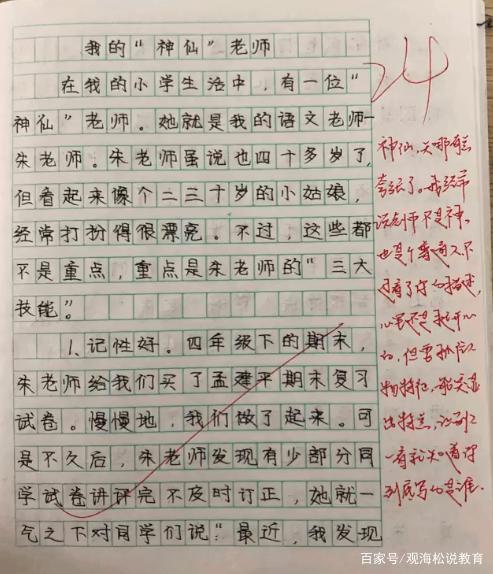 我的“神仙”老师
24
在我的小学生活中，有一位“
神仙”老师。她就是我的语文老师—
朱老师。朱老师虽说也四十多岁了，
但看起来像个二三十岁的小姑娘，
经常打扮得很漂亮。不过，这些都
不是重点，重点是朱老师的“三大
技能”。
1、记性好。四年级下的期末，
朱老师给我们买了孟建平期末复习
试卷。慢慢地，我们做了起来。可
是不久后，朱老师发现有少部分同
学试卷讲评完不及时订正，她就一
气之下对同学们说：“最近，我发现
神仙，
夸张了。我经常
说老师不是神，
也是个普通人。不
过看了你的描述，
心里还是挺开心
的，但要抓住人
物特征，
出特点，让别人
一看就知道你
到底写的是谁。
百家号/观海松说教育